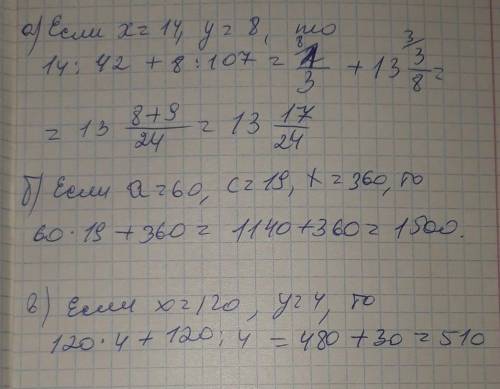 а) Если x=14, y=8, то
14 : 42 + 8 : 107 = 1/3 + 13 3/8 =
= 13 8+9/24 = 13 17/24
б) Если a=60, c=19, x=360, то
60·19+360= 1140+360=1500.
в) Если x=120, y=4, то
120·4 + 120 : 4 = 480 + 30 = 510